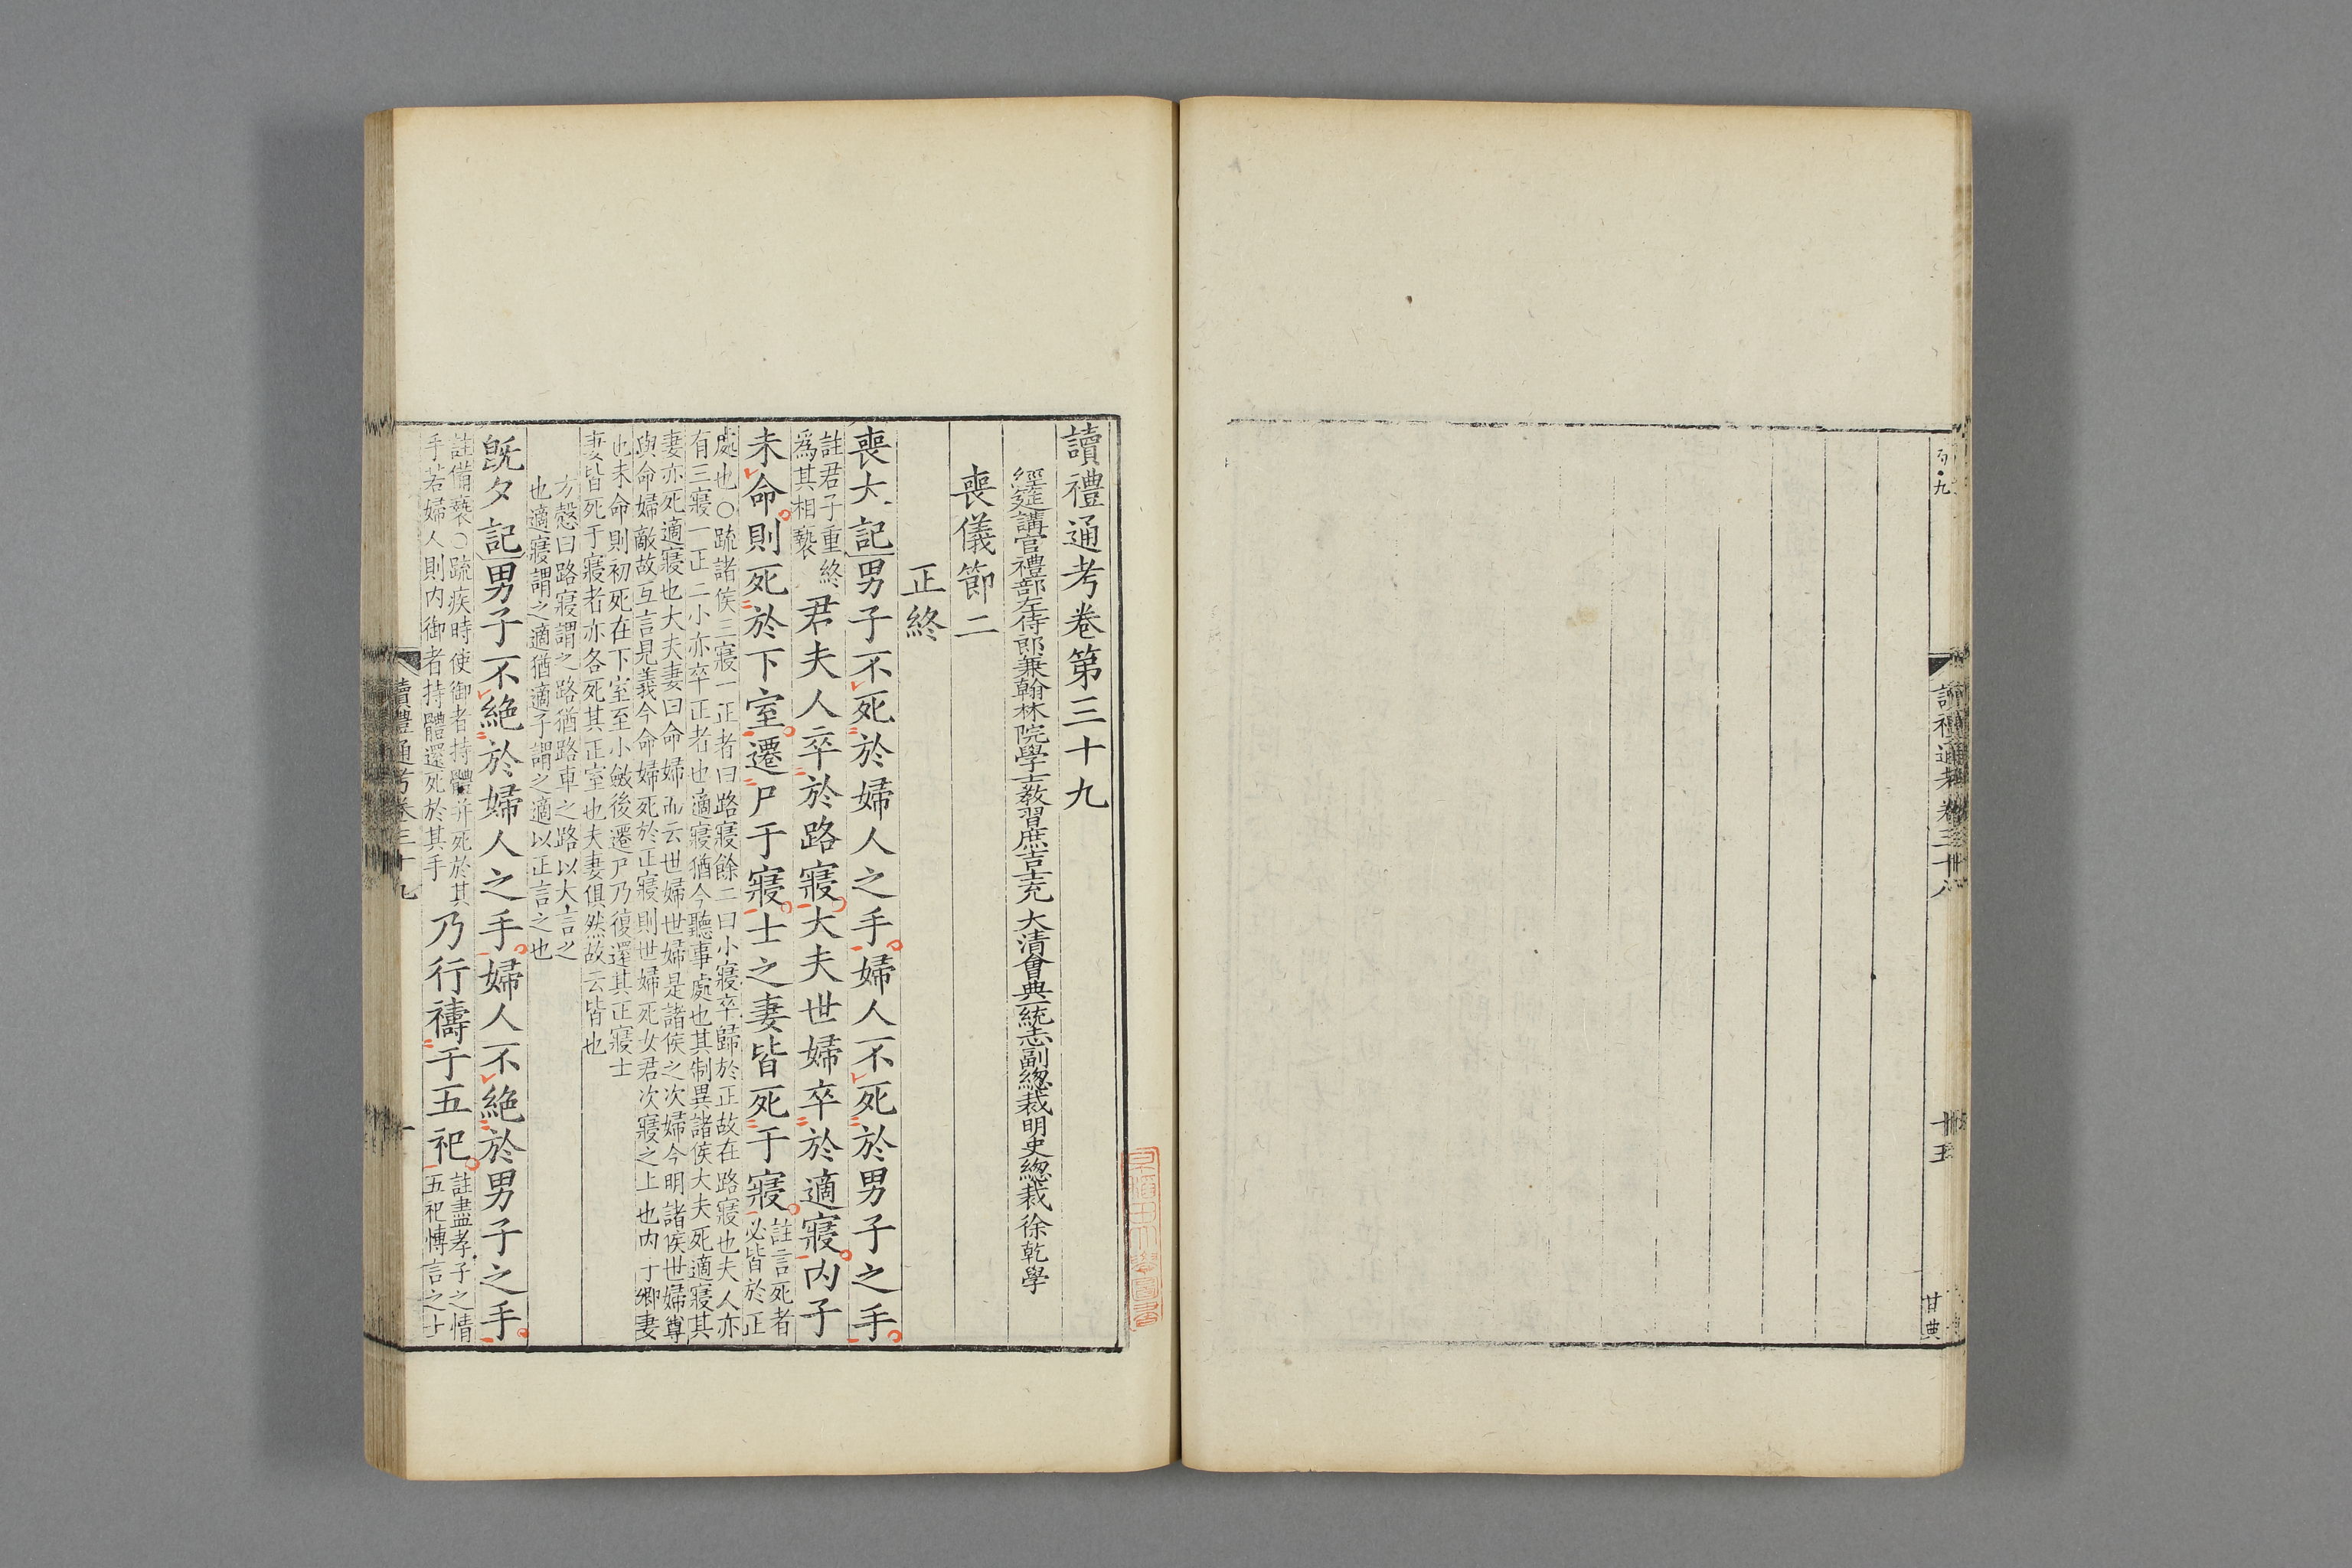 讀禮通考卷三十八
十五
甘典
讀禮通考卷第三十九
經筵講官禮部左侍郎兼翰林院學士教習庶吉士充 大清會典一統志副總裁明史總裁徐乾學
喪儀節二
正終
喪大記男子不死於婦人之手婦人不死於男子之手
註君子重終
爲其相褻
君夫人卒於路寢大夫世婦卒於適寢內子
未命則死於下室遷尸于寢士之妻皆死于寢
註言死者
必皆於正
處也○疏諸侯三寢一正者曰路寢餘二曰小寢卒歸於正故在路寢也夫人亦
有三寢一正二小亦卒正者也適寢猶今聽事處也其制異諸侯大夫死適寢其
妻亦死適寢也大夫妻曰命婦而云世婦世婦是諸侯之次婦今明諸侯世婦尊
與命婦敵故互言見義今命婦死於正寢則世婦死女君次寢之上也內子卿妻
也未命則初死在下室至小斂後遷尸乃復還其正寢士
妻皆死于寢者亦各死其正室也夫妻俱然故云皆也
方慤曰路寢謂之路猶路車之路以大言之
也適寢謂之適猶適子謂之適以正言之也
旣夕記男子不絶於婦人之手婦人不絶於男子之手
註備褻○疏疾時使御者持體并死於其
手若婦人則内御者持體還死於其手
乃行禱于五祀
註盡孝子之情
五祀博言之士
讀禮通考卷三十九
一